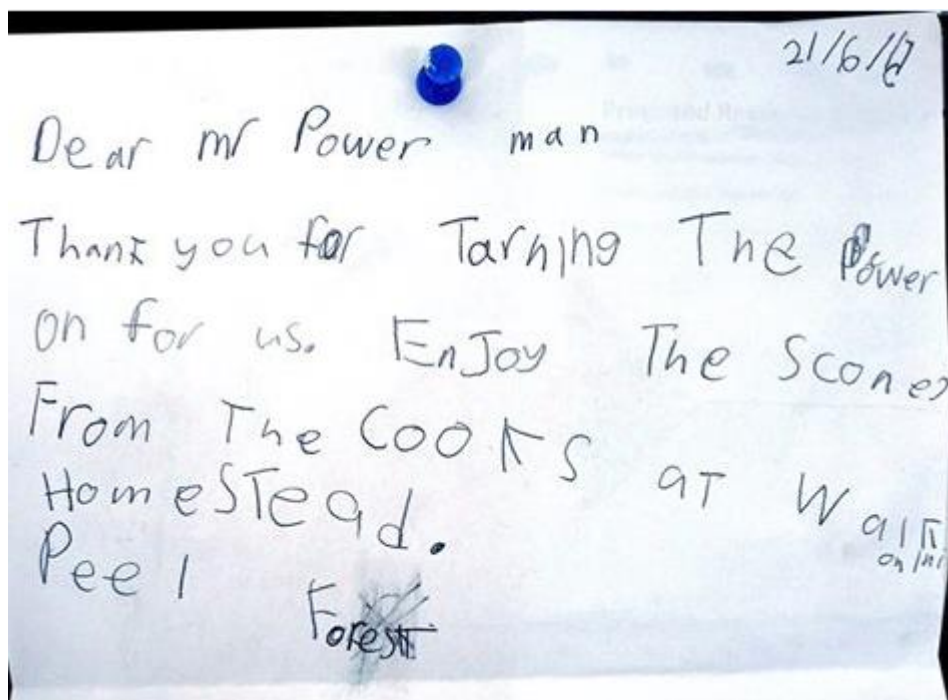 21/6/
Dear mr Power man
Thank you for Tarning The Power
on for us. EnJoy The Scones
From The Cooks at Walk
HomeSTead.
Peel Forest